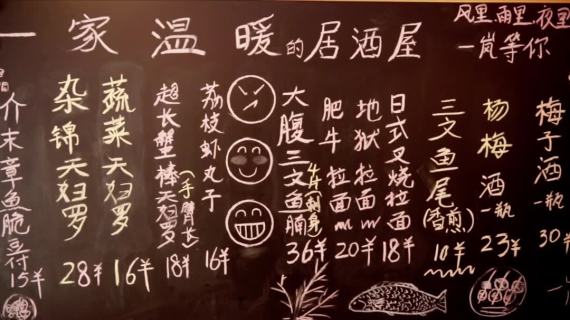 一家温暖的居酒屋
风里,雨里,夜里
一岚等你
介末章鱼脆豆付
15半
杂锦天妇罗
28半
蔬菜天妇罗
16半
超长蟹棒天妇罗
(手臂长)
18半
荔枝虾丸子
16半
大腹三文鱼腩
刺身
36半
肥牛拉面
20半
地狱拉面
日式叉烧拉面
18半
三文鱼尾
(香煎)
10半
杨梅酒一瓶
23半
梅子酒一瓶
30半